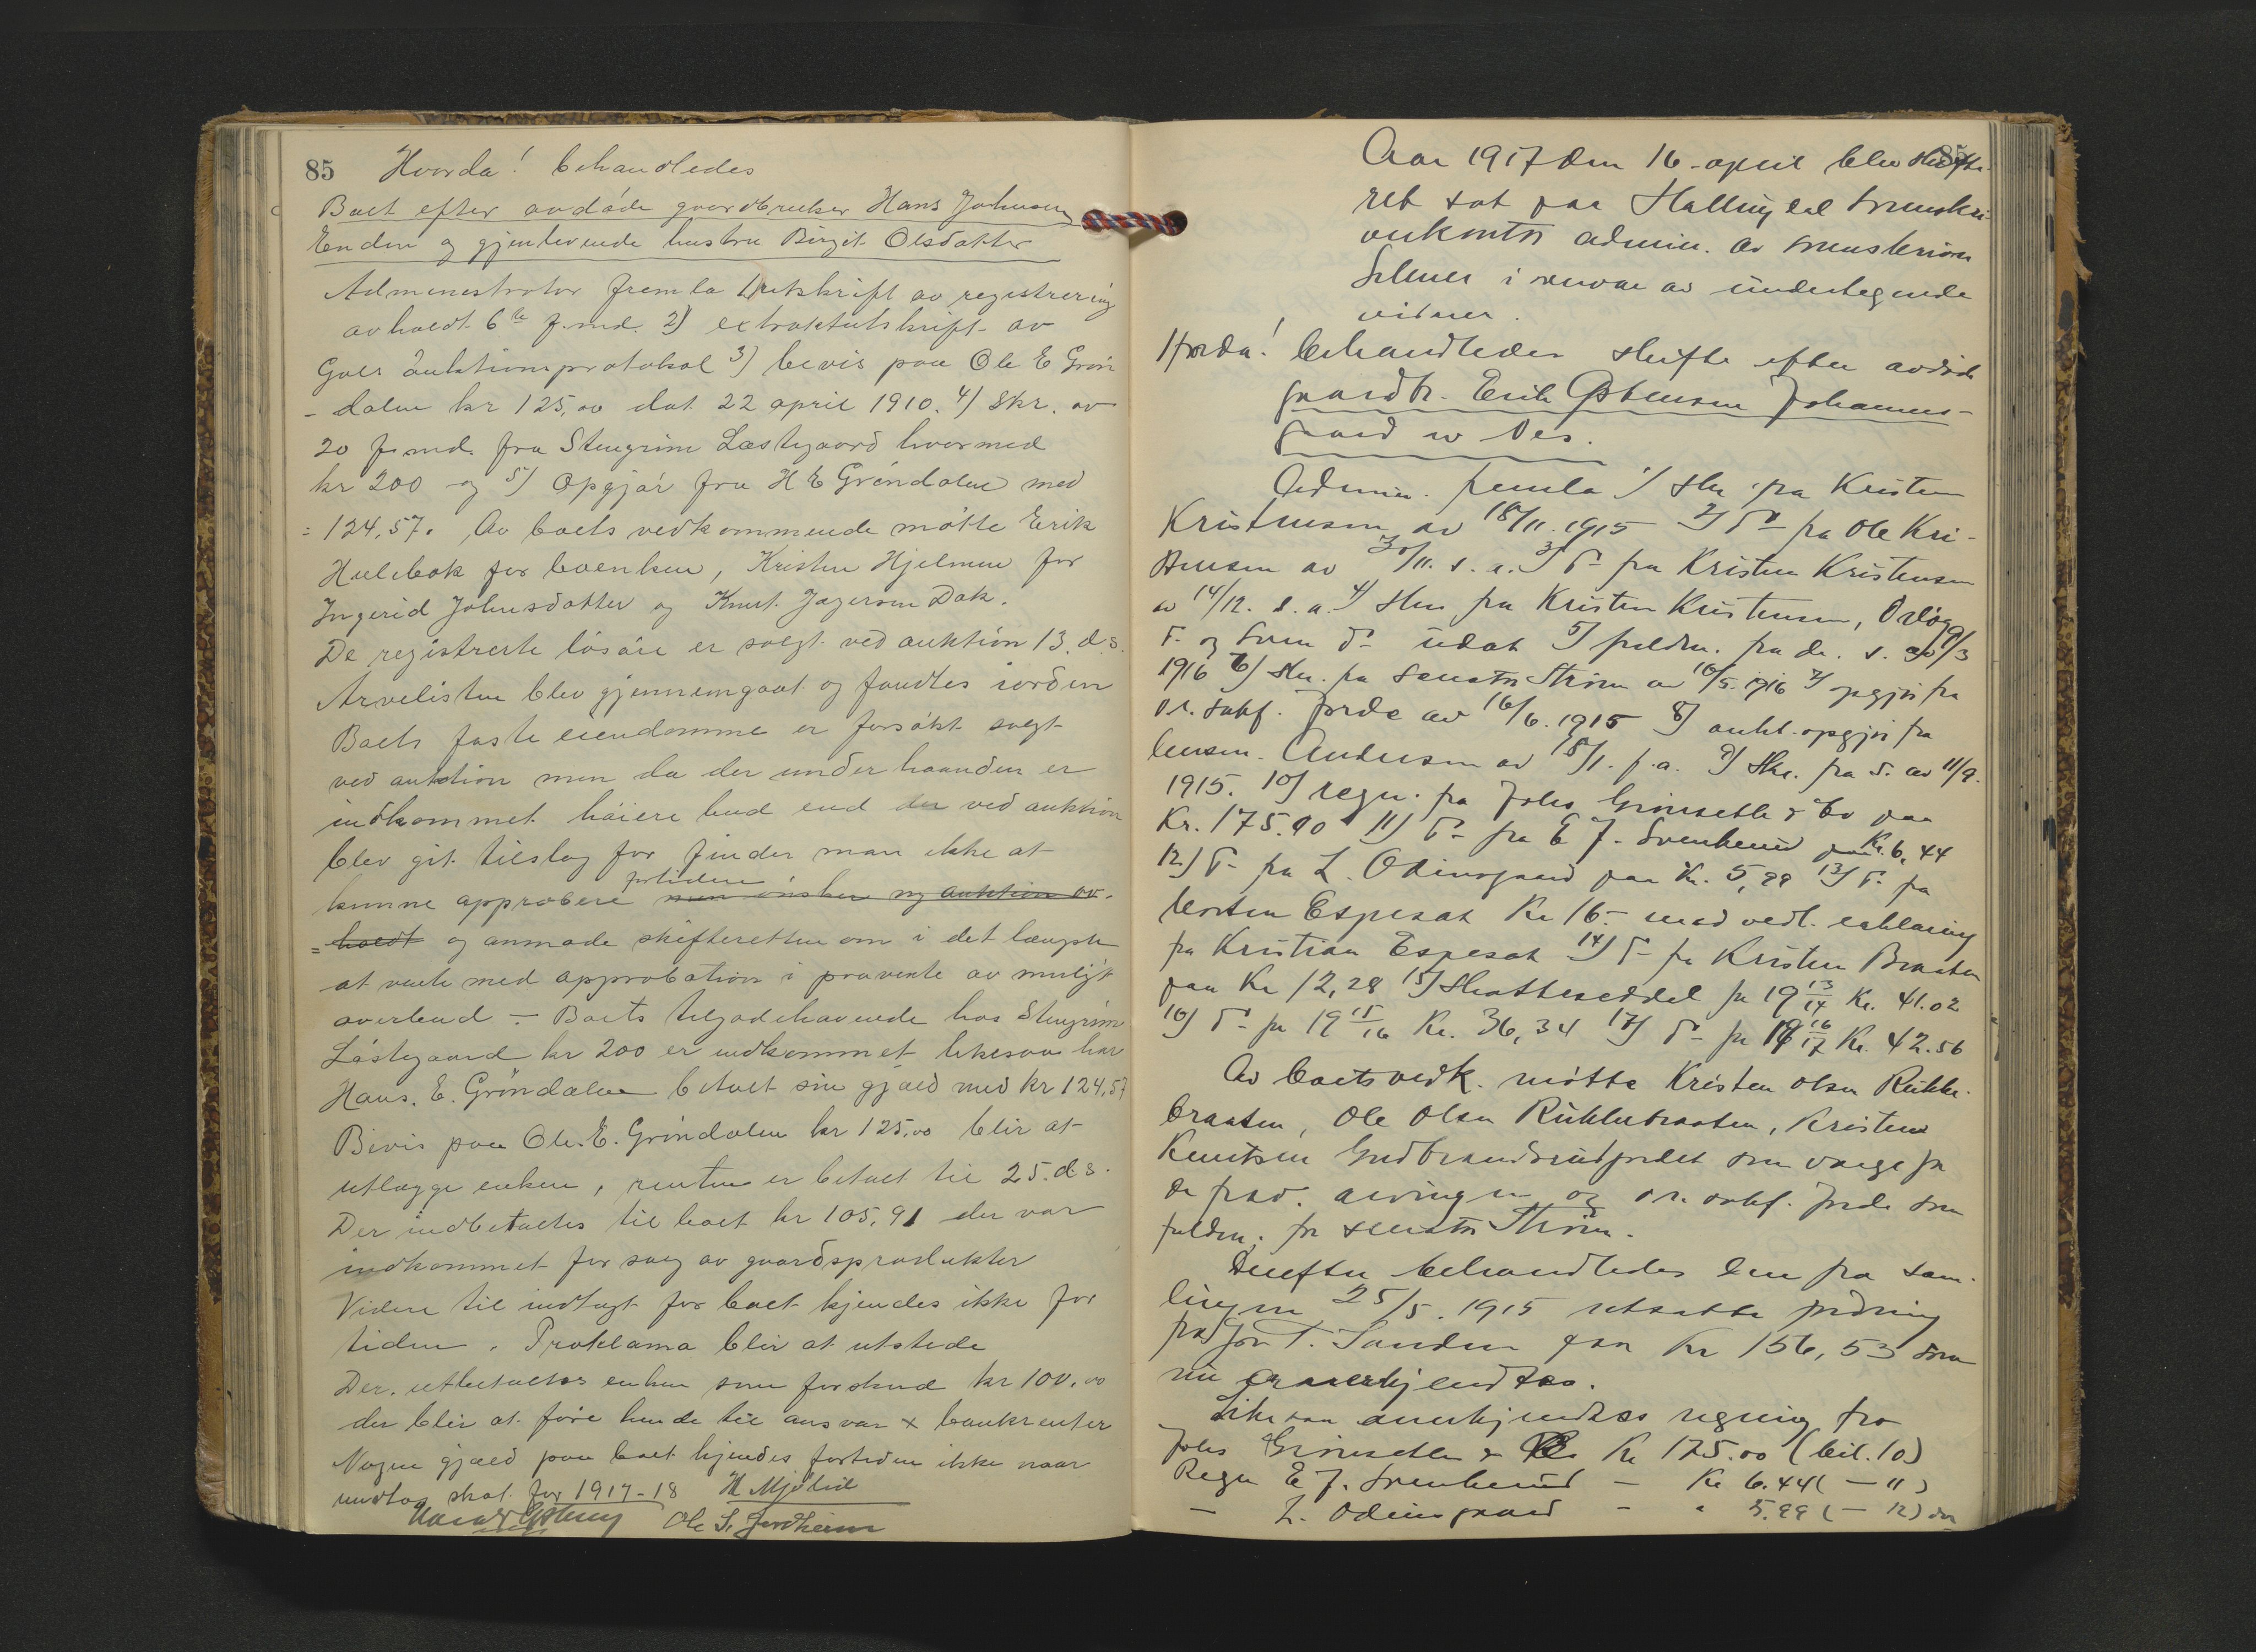 85 Hvorda! behandledes
Boet efter avdøde gaardbruker Hans Johnsen
Enden og gjenlevende hustru Birgit Olsdatter
Administrator fremla 1) utskrift av registrering
avholdt 6te f. md. 2) extraktutskrift av
Gols auktionsprotokol 3) bevis paa Ole E Grön
-dalen kr 125,00 dat 22 april 1910. 4) Skr. av
20 f. md. fra Stengrim Løstegaard hvormed
kr 200 og 5) Opgjør fra H E Gröndalen med
= 124,57. Av boets vedkommende møtte Erik
Hulebak for boenken, Kristen Hjelmen for
Ingerid Johnsdatter og Knut Dok.
De registrerte løsøre er solgt ved auktion 13. d.s.
Arvelisten blev gjennemgaat og fandtes iorden
Boets faste eiendomme er forsøkt solgt
ved auktion men da der underhaanden er
indkommet høiere bud end der ved auktion
blev git tilslag for finder man ikke at
kunne approbere fortiden men ønsker ny auktion av-
=holdt og anmode skifteretten om i det længste
at vente med approbation i paavente av muligt
overbud - Boets tilgodehavende hos Stengrim
Løstegaard kr 200 er indkommet likesaa har
Hans. E. Gröndalen betalt sin gjæld med kr 124,57
Bevis paa Ole. E. Gröndalen kr 125,00 blir at
utlægge enken, renten er betalt til 25. d.s.
Der indbetaltes til boet kr 105,91 der var
indkommet for salg av gaardsprodukter
Videre til indtægt for boet kjendes ikke for
tiden. Proklama blir at utstede
Der utbetaltes enken som forskud kr 100,00
der blir at føre hende til ansvar + bankrenter
Nogen gjæld paa boet kjendes fortiden ikke naar
undtas skat for 1917-18 H Mjølid
Ole S. Jordheim
85
Aar 1917 den 16 april blev skifte-
ret sat paa Hallingdal sorenskri-
verkontor admin. av sorenskriver
i nærvær av undertegnede
vidner.
Hvorda! behandledes skifte efter avdøde
gaardbr. Erik Østensen Johannes-
gaard av Nes.
Admin. fremla 1) skr. fra Kristen
Kristensen av 18/11. 1915 2) do fra Ole Kri-
stensen av 30/11. s. a. 3) do fra Kristen Kristensen
av 14/12. s. a. 4) Skr. fra Kristen Kristensen,
do og do udat 5) fra do. s. 9/3
1916 6) Skr. fra Senator Strøm av 10/5. 1916 7) opgjør fra
o.r. sakf. Jorde av 16/6. 1915 8) aukt. opgjør fra
lensm. Andersen av 15/1. f. a. 9) Skr. fra s. av 11/9.
1915. 10) regn. fra Johs Grimseth & Co paa
Kr. 175.90 11) do fra E J. Svenkerud paa Kr. 6,44
12) do fra L. Odinsgaard paa Kr. 5,99 13) do fra
Espeset Kr 16.- med vedl. erklæring
fra Kristian Espeset 14) do fra Kristen Braaten
paa Kr 12,28 15) Skatteseddel for 19 13/14 Kr. 41.02
16) do for 19 15/16 Kr. 36,34 17) do for 19 16/17 Kr. 42.56
Av boets vedk. møtte Kristen Olsen Rukke-
braaten, Ole Olsen Rukkebraaten, Kristen
Knutsen Gudbrandsrudjordet som værge for
de frav. arvinger og o.r. sakf. Jorde som
fuldm. for senator Strøm.
Derefter behandledes den fra sam-
lingen 25/5. 1915 utsatte fordring
fra Jon T. Sanden paa Kr 156,53 som
nu anerkjendtes.
Likesaa anerkjendtes regning fra
Johs Grimseth & Co Kr 175.00 (bil. 10)
Regn E J. Svenkerud - Kr 6.44 ( - 11)
- L. Odinsgaard - " 5.99 ( - 12)